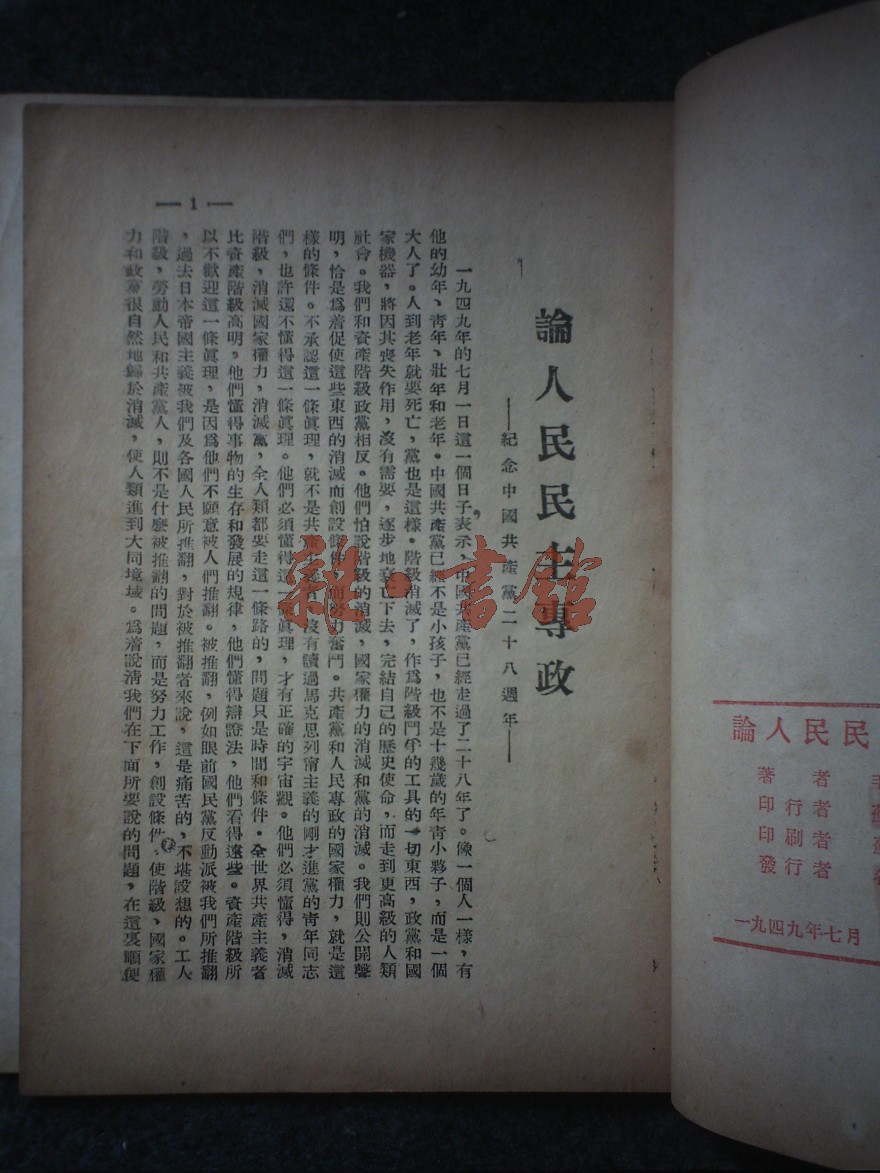 論人民民主專政
——紀念中國共產黨二十八週年——
一九四九年的七月一日這一個日子表示，中國共產黨已經走過了二十八年了。像一個人一樣，有
他的幼年、靑年、壯年和老年。中國共產黨已經不是小孩子，也不是十幾歲的年靑小夥子，而是一個
大人了。人到老年就要死亡，黨也是這樣。階級消滅了，作爲階級鬥爭的工具的一切東西，政黨和國
家機器，將因其喪失作用，沒有需要，逐步地衰亡下去，完結自己的歷史使命，而走到更高級的人類
社會。我們和資產階級政黨相反。他們怕說階級的消滅，國家權力的消滅和黨的消滅。我們則公開聲
明，恰是爲着促使這些東西的消滅而創設條件，而努力奮鬥。共產黨和人民專政的國家權力，就是這
樣的條件。不承認這一條眞理，就不是共產主義者。沒有讀過馬克思列甯主義的剛才進黨的靑年同志
們，也許還不懂得這一條眞理。他們必須懂得這一條眞理，才有正確的宇宙觀。他們必須懂得，消滅
階級，消滅國家權力，消滅黨，全人類都要走這一條路的，問題只是時間和條件。全世界共產主義者
比資產階級高明。他們懂得事物的生存和發展的規律，他們懂得辯證法，他們看得遠些。資產階級所
以不歡迎這一條眞理，是因爲他們不願意被人們推翻。被推翻，例如眼前國民黨反動派被我們所推翻
，過去日本帝國主義被我們及各國人民所推翻，對於被推翻者來說，這是痛苦的，不堪設想的。工人
階級，勞動人民和共產黨人，則不是什麼被推翻的問題，而是努力工作，創設條件，使階級，國家權
力和政黨很自然地歸於消滅，使人類進到大同境域。爲着說清我們在下面所要說的問題，在這裏順便
— 1 —
雜·書館
論人民民
著者
印行者
印刷者
發行者
一九四九年七月